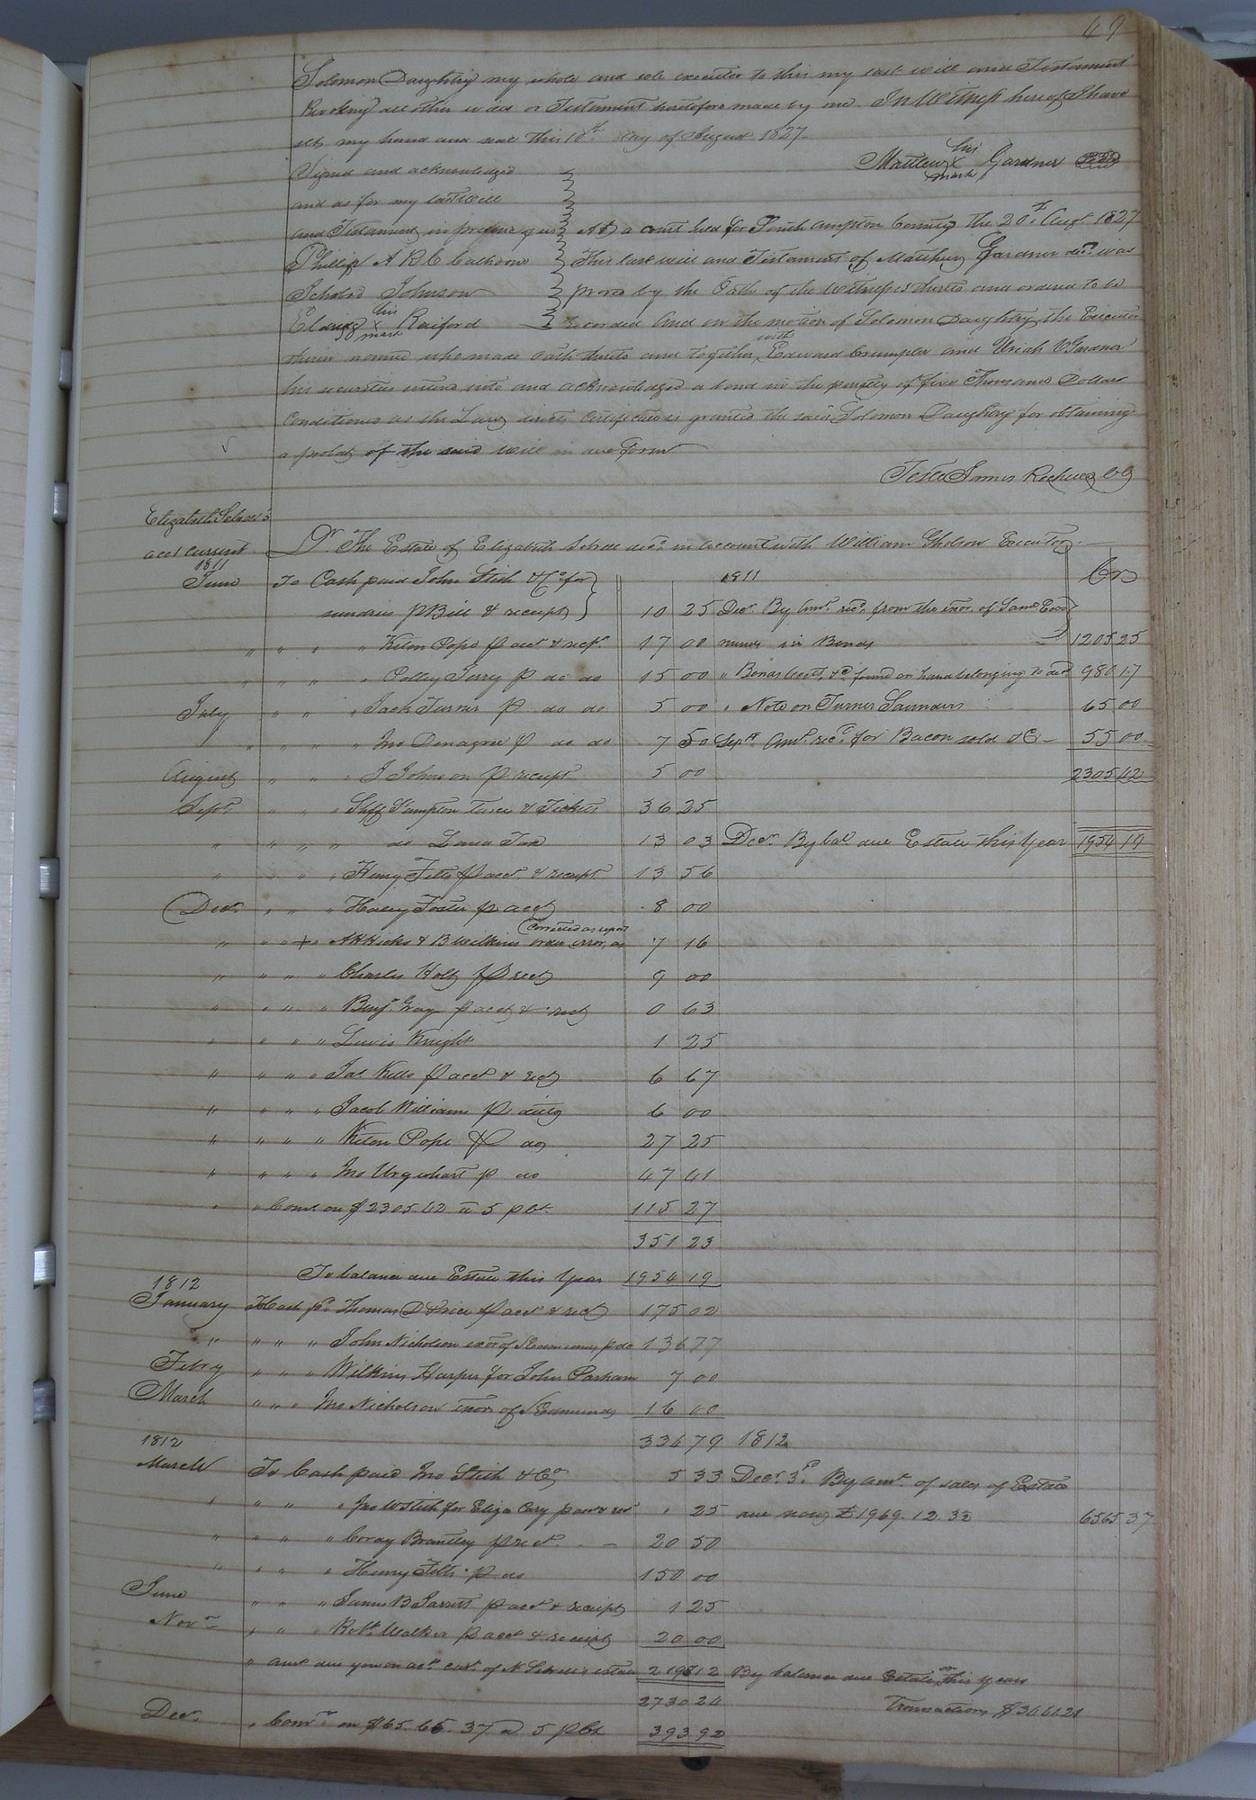 49
Solomon Daughtry my whole and sole executor to this my last will and Testament
Revoking all other wills or Testament heretofore made by me. In Witness hereof I have
set my hand and seal this 10th day of August 1827.
his
Matthew X Gardner Seal
mark
Signed and acknowledged
and as for my last will
and Testament in presence of us
Phillip A R C Calhoun
Johnson
his
X Raiford
mark
At a court held for Southampton County the 20th Augt 1827
This last will and Testament of Matthew Gardner decd was
proved by the Oath of the Witnesses thereto and ordered to be
recorded And on the motion of Solomon Daughtry the Executor
therein named who made Oath thereto and together with Edward Crumpler and Uriah V Gardner
his securities entered into and acknowledged a bond in the penalty of five Thousand Dollars
Conditioned as the Law directs Certificate is granted the said Solomon Daughtry for obtaining
a probat of the said will in due form
Teste James Rochelle CC
Elizabeth
acct current
Dr. The Estate of Elizabeth decd in account with William Gholson Executor Cr
1811
June To Cash paid John Stith & Co for
sundries p Bill & receipt 10 25
" " " " Kiton Pope p acct & rect 17 00
" " " " Polley p do do 15 00
July " " " " Jack Turner p do do 5 00
" " " " Jno p do do 7 50
August " " " " J Johnson p receipt 5 00
Sept " " " " 36 25
" " " " do Land Tax 13 03
" " " " Henry Felts p acct & receipt 13 56
Decr " " " " Foster p acct 8 00
corrected as upon
" " " + " A Hicks & B Wilkins order error, as 7 16
" " " " " Charles Holt p rect 9 00
" " " " " Benj Gray p acct & rect 0 63
" " " " " Lewis Knight 1 25
" " " " " Jas Kello p acct & rect 6 67
" " " " " Jacob Williams p ditto 6 00
" " " " " Kiton Pope p do 27 25
" " " " " Jno Urquhart p do 47 41
" " Comr on $2305.42 a 5 p Ct. 115 27
351 23
To balance due Estate this Year 1954 19
1811
Decr By Amt recd from the exor of Saml
in Bonds 1205 25
" Bonds &c found on hand belonging to decd 980 17
" Note on Turner Saunders 65 00
Sept Amt recd for Bacon sold &c 55 00
2305 42
Decr By bal due Estate this Year 1954 19
1812
January To Cash pd Thomas D Price p acct & rect 175 02
" " " " John Nicholson exor of p do 136 77
Feby " " " Wilkins Harper for John Parham 7 00
March " " " Jno Nicholson exor of Edmunds 16 00
334 79
1812
March To Cash paid Jno Stith & Co 5 33
" " " " Jno W Stith for Eliza Cary p acct & rect " 25
" " " " Brantley p rect. 20 50
" " " " Henry Felts p do 150 00
June " " " " James B Jarratt p acct & receipt 1 25
Novr " " " " Robt Walker p acct & receipt 20 00
" amt due you on act. curt. of N estate 2 196 12
2730 24
Decr. " Comr on $65.65.37 a 5 p Ct 393 92
1812
Decr 3d By amt of sales of Estate
due now £1969.12.3 6565 37
By balance due Estate on this years
Transactions